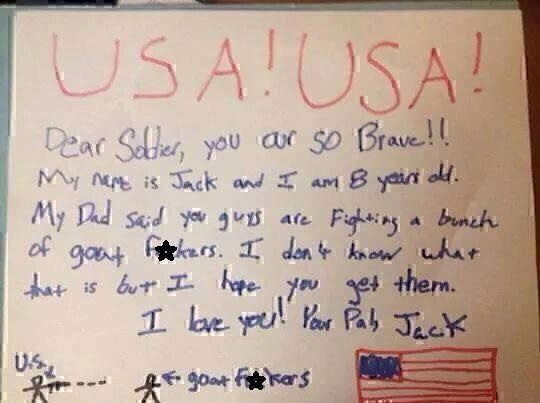 USA! USA!
Dear Soldier, you our so Brave!!
My name is Jack and I am 8 years old.
My Dad said you guys are Fighting a bunch
of goat f★kers. I don't know what
that is but I hope you get them.
I love you! Your Pal, Jack
U.S.
← goat F★kers